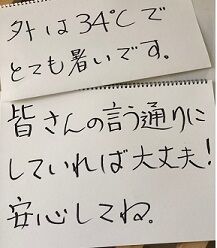 外は34℃で
とても暑いです。
皆さんの言う通りに
していれば大丈夫!
安心してね。